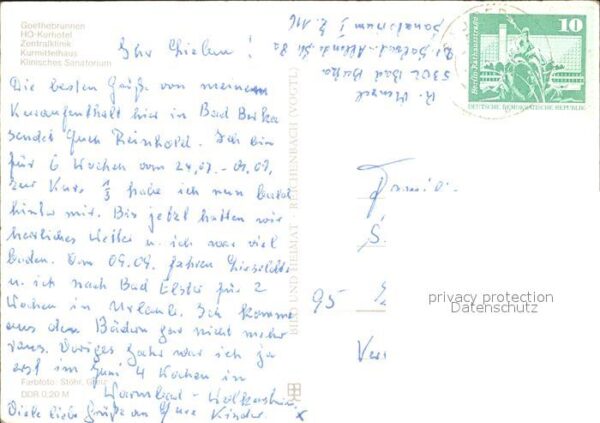 Goethebrunnen
HO-Kurhotel
Zentralklinik
Kurmittelhaus
Klinisches Sanatorium
Ihr Lieben!
Die besten Grüße von meinem
Kuraufenthalt hier in Bad Berka
sendet Euch Reinhold. Ich bin
für 6 Wochen vom 24.07. - 04.09.
zur Kur. 1/3 habe ich nun bald
hinter mir. Bis jetzt hatten wir
herrliches Wetter u. ich war viel
baden. Vom 09.09. fahren
u. ich nach Bad Elster für 2
Wochen in Urlaub. Ich komme
aus den Bädern gar nicht mehr
raus. Voriges Jahr war ich ja
erst im Juni 4 Wochen in
Warmbad - Wolkenstein.
Viele liebe Grüße an Eure Kinder.
Farbfoto: Stöhr, Greiz
DDR 0,20 M
BILD UND HEIMAT REICHENBACH (VOGTL)
R. Menzel
5302 Bad Berka
Sanatorium I Z. 116
10
Berlin, Rathausstraße
DEUTSCHE DEMOKRATISCHE REPUBLIK
Familie
95
privacy protection
Datenschutz